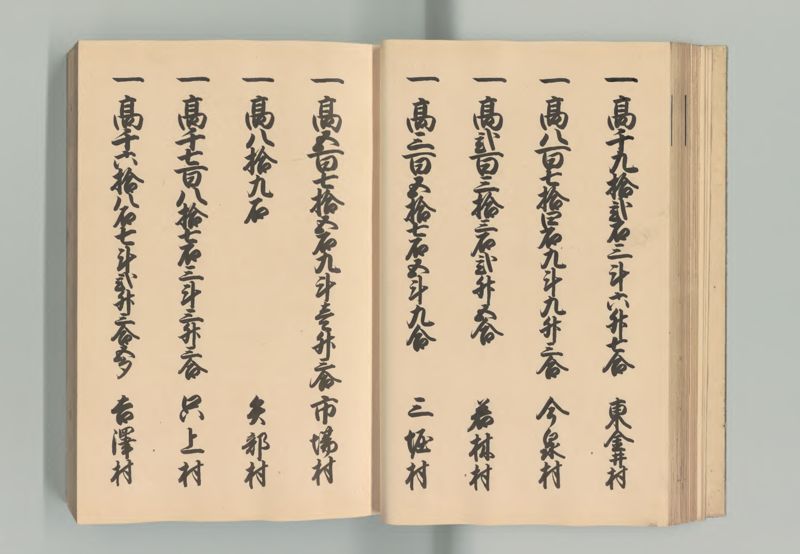 一高千九拾弐石三斗六升七合 東金井村
一高八百七拾四石九斗九升三合 今泉村
一高弐百三拾三石弐升五合 若林村
一高三百五拾七石五斗九合 三堀村
一高五百七拾五石九斗壱升三合 市場村
一高八拾九石 矢部村
一高千七百八拾七石三斗三升三合 只上村
一高千六拾八石七斗弐升三合五夕 吉澤村